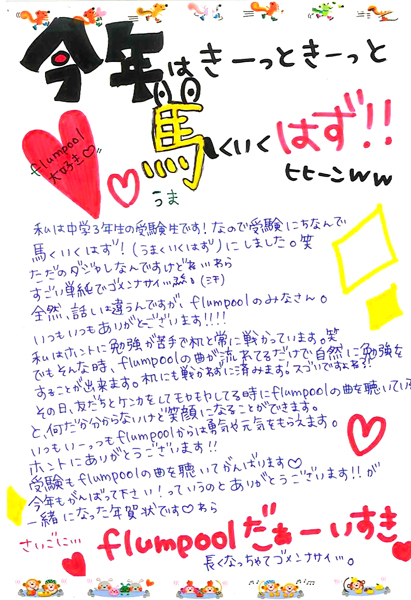 今年はきーっときーっと
馬くいくはず!!
うま
ヒヒーンww
flumpool
大好き♡
私は中学3年生の受験生です!なので受験にちなんで
馬くいくはず!(うまくいくはず)にしました。笑
ただのダジャレなんですけどねぃわら
すごい単純でゴメンナサイ
全然、話しは違うんですが、flumpoolのみなさん。
いつもいつもありがとうございます!!!!
私はホントに勉強が苦手で机と常に戦かっています。笑
でもそんな時、flumpoolの曲が流れてるだけで自然に勉強を
することが出来ます。机にも戦かわずに済みます。スゴいですよね?!
その日、友だちとケンカをしてモヤモヤしてる時にflumpoolの曲を聴いてい
と、何だか分からないけど笑顔になることができます。
いつもいーっつもflumpoolからは勇気や元気をもらえます。
ホントにありがとうございます!!
受験もflumpoolの曲を聴いてがんばります♡
今年もがんばって下さい!っていうのとありがとうございます!!が
一緒になった年賀状です♡わら
さいごに…
flumpoolだぁーいすき
長くなっちゃてゴメンナサイ…。